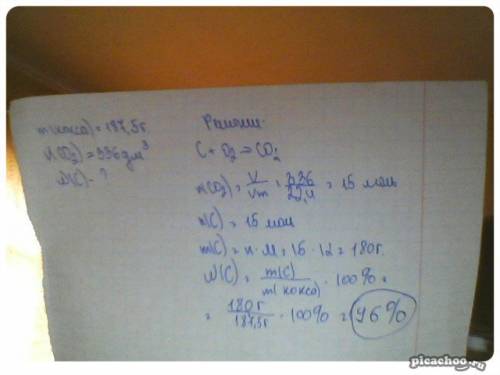 m(кокса) = 187,5г.
V(CO₂) = 336 дм³
W(C) - ?
Решение.
C + O₂ = CO₂
n(CO₂) = V/Vm = 336/22,4 = 15 моль
n(C) = 15 моль
m(C) = n · M = 15 · 12 = 180г.
W(C) = m(C)/m(кокса) · 100% =
= 180г/187,5г · 100% = 96%
picachoo.ru